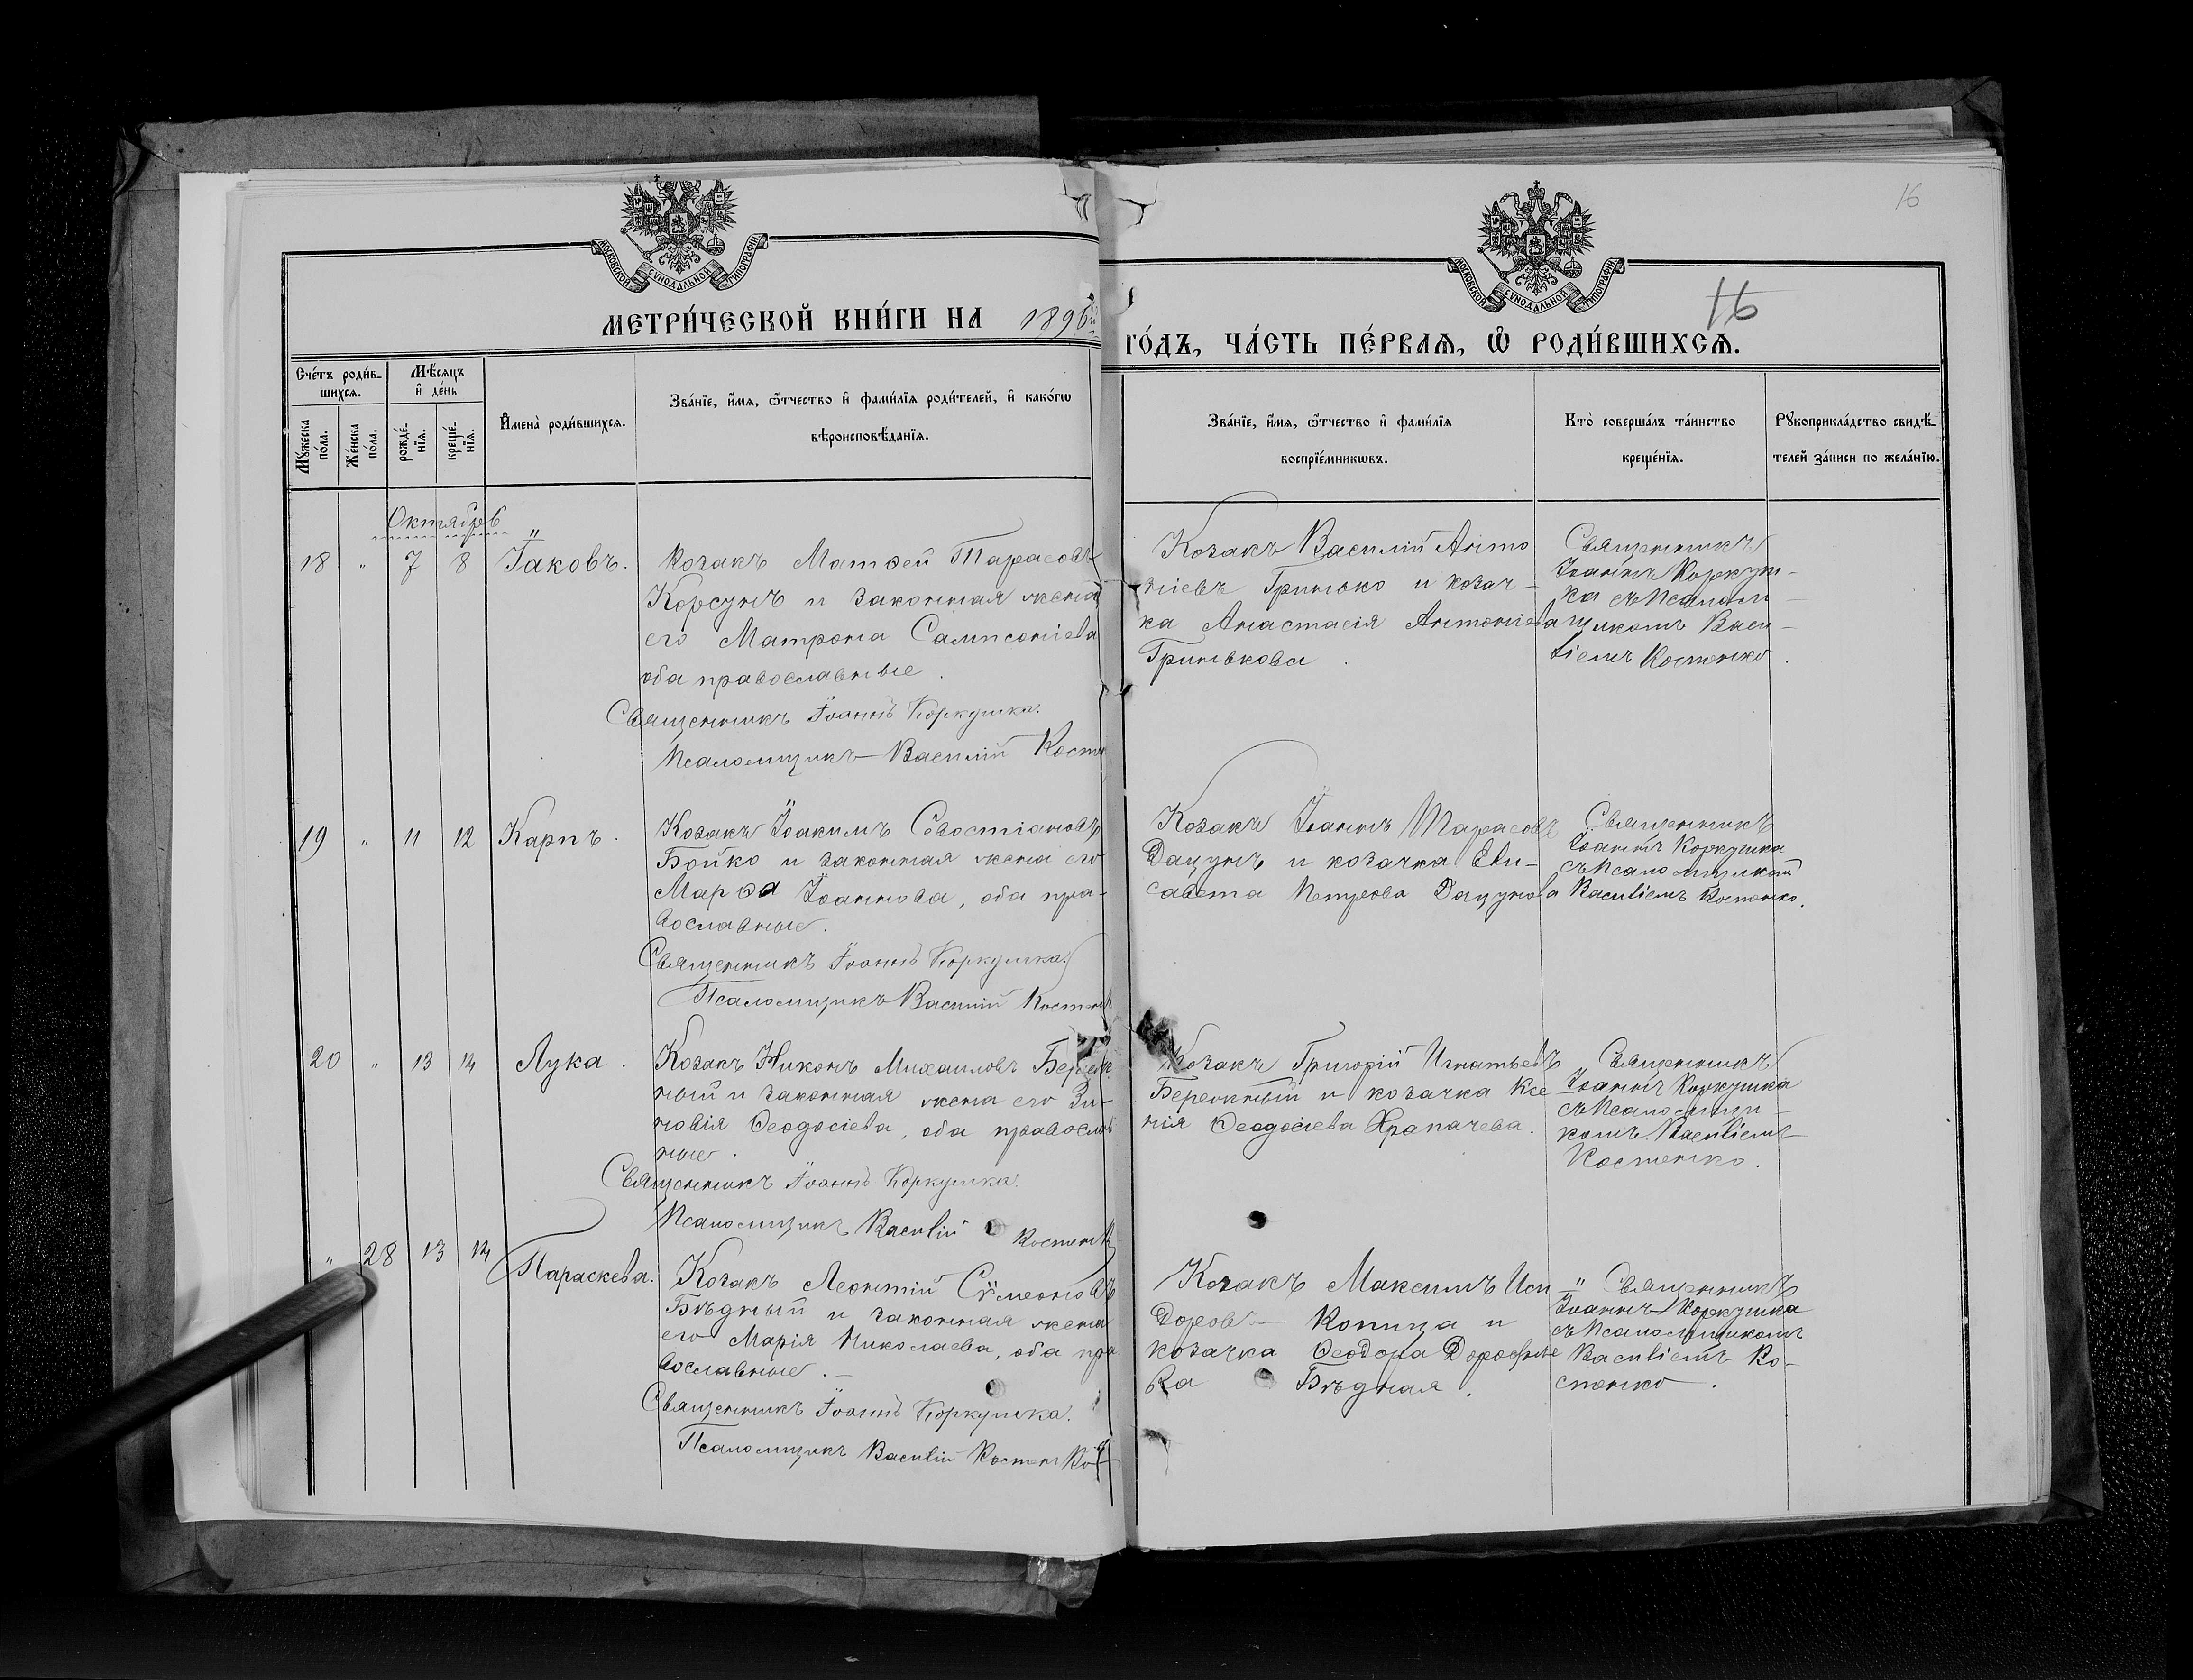 16
МОСКОВСКОЙ СѴНОДАЛЬНОЙ ТИПОГРАФІИ
МОСКОВСКОЙ СѴНОДАЛЬНОЙ ТИПОГРАФІИ
16
МЕТРИ́ЧЕСКОЙ КНИ́ГИ НА 1896й
ГО́ДЪ, ЧА́СТЬ ПЕ́РВАѦ, Ѡ҆ РОДИ́ВШИХСѦ.
Сче́тъ роди́в-
шихсѧ.
Мꙋ́жеска по́ла.
Же́нска по́ла.
Мѣ́сѧцъ и҆ де́нь
рожде́-нїѧ.
креще́-нїѧ.
И҆мена̀ роди́вшихсѧ.
Зва́нїе, и҆́мѧ, ѻ҆́тчество и҆ фами́лїѧ роди́телей, и҆ како́гѡ
вѣроисповѣ́данїѧ.
Зва́нїе, и҆́мѧ, ѻ҆́тчество и҆ фами́лїѧ
воспрїе́мникѡвъ.
Кто̀ соверша́лъ та́инство
креще́нїѧ.
Рꙋкоприкла́дство свидѣ́-
телей за́писи по жела́нїю.
Октябрь
18 " 7 8 Іаковъ.
Козакъ Матѳей Тарасовъ
Корсунъ и законная жена
его Матрона Сампсоніева
оба православные.
Священникъ Іоаннъ Коркушка.
Псаломщикъ Василій Косте
Козакъ Василій Анто
ніевъ Гринько и козач-
ка Анастасія Антоніева
Гринькова.
Священникъ
Іоаннъ Коркуш-
ка съ Псалом-
щикомъ Васи-
ліемъ Костенко.
19 " 11 12 Карпъ.
Козакъ Іоакимъ Севостіановъ
Бойко и законная жена его
Марѳа Іоаннова, оба пра-
вославные.
Священникъ Іоаннъ Коркушка.
Псаломщикъ Василій Костен
Козакъ Іоаннъ Тарасовъ
Дацунъ и козачка Ели-
савета Петрова Дацунова
Священникъ
Іоаннъ Коркушка
съ Псаломщикомъ
Василіемъ Костенко.
20 " 13 14 Лука.
Козакъ Никонъ Михаиловъ Береж
ный и законная жена его Зи-
новія Ѳеодосіева, оба православ
ные.
Священникъ Іоаннъ Коркушка.
Псаломщикъ Василій Костенк
Козакъ Григорій Игнатьевъ
Бережный и козачка Ксе
нія Ѳеодосіева Храпачева.
Священникъ
Іоаннъ Коркушка
съ Псаломщи-
комъ Василіемъ
Костенко.
" 28 13 14 Параскева.
Козакъ Леонтій Сѵмеоновъ
Бѣдный и законная жена
его Марія Николаева, оба пра
вославные.
Священникъ Іоаннъ Коркушка.
Псаломщикъ Василій Костенко
Козакъ Максимъ Иси
доровъ Копица и
козачка Ѳеодора Дорофѣе
ва Бѣдная.
Священникъ
Іоаннъ Коркушка
съ Псаломщикомъ
Василіемъ Ко-
стенко.